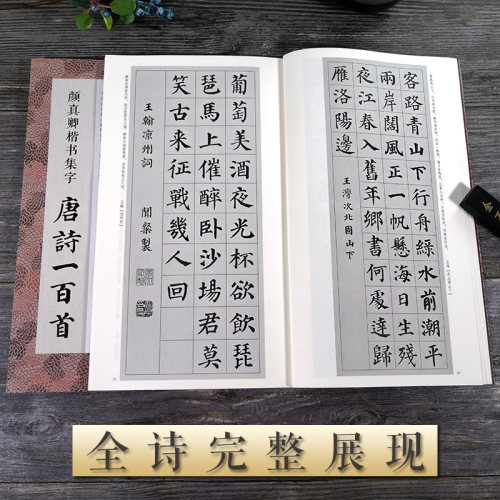 颜真卿楷书集字
唐詩一百首
客路青山下行舟綠水前潮平
兩岸闊風正一帆懸海日生殘
夜江春入舊年鄉書何處達歸
雁洛陽邊
王灣次北固山下
葡萄美酒夜光杯欲飲琵
琶馬上催醉卧沙場君莫
笑古来征戰幾人回
王翰凉州詞
全诗完整展现